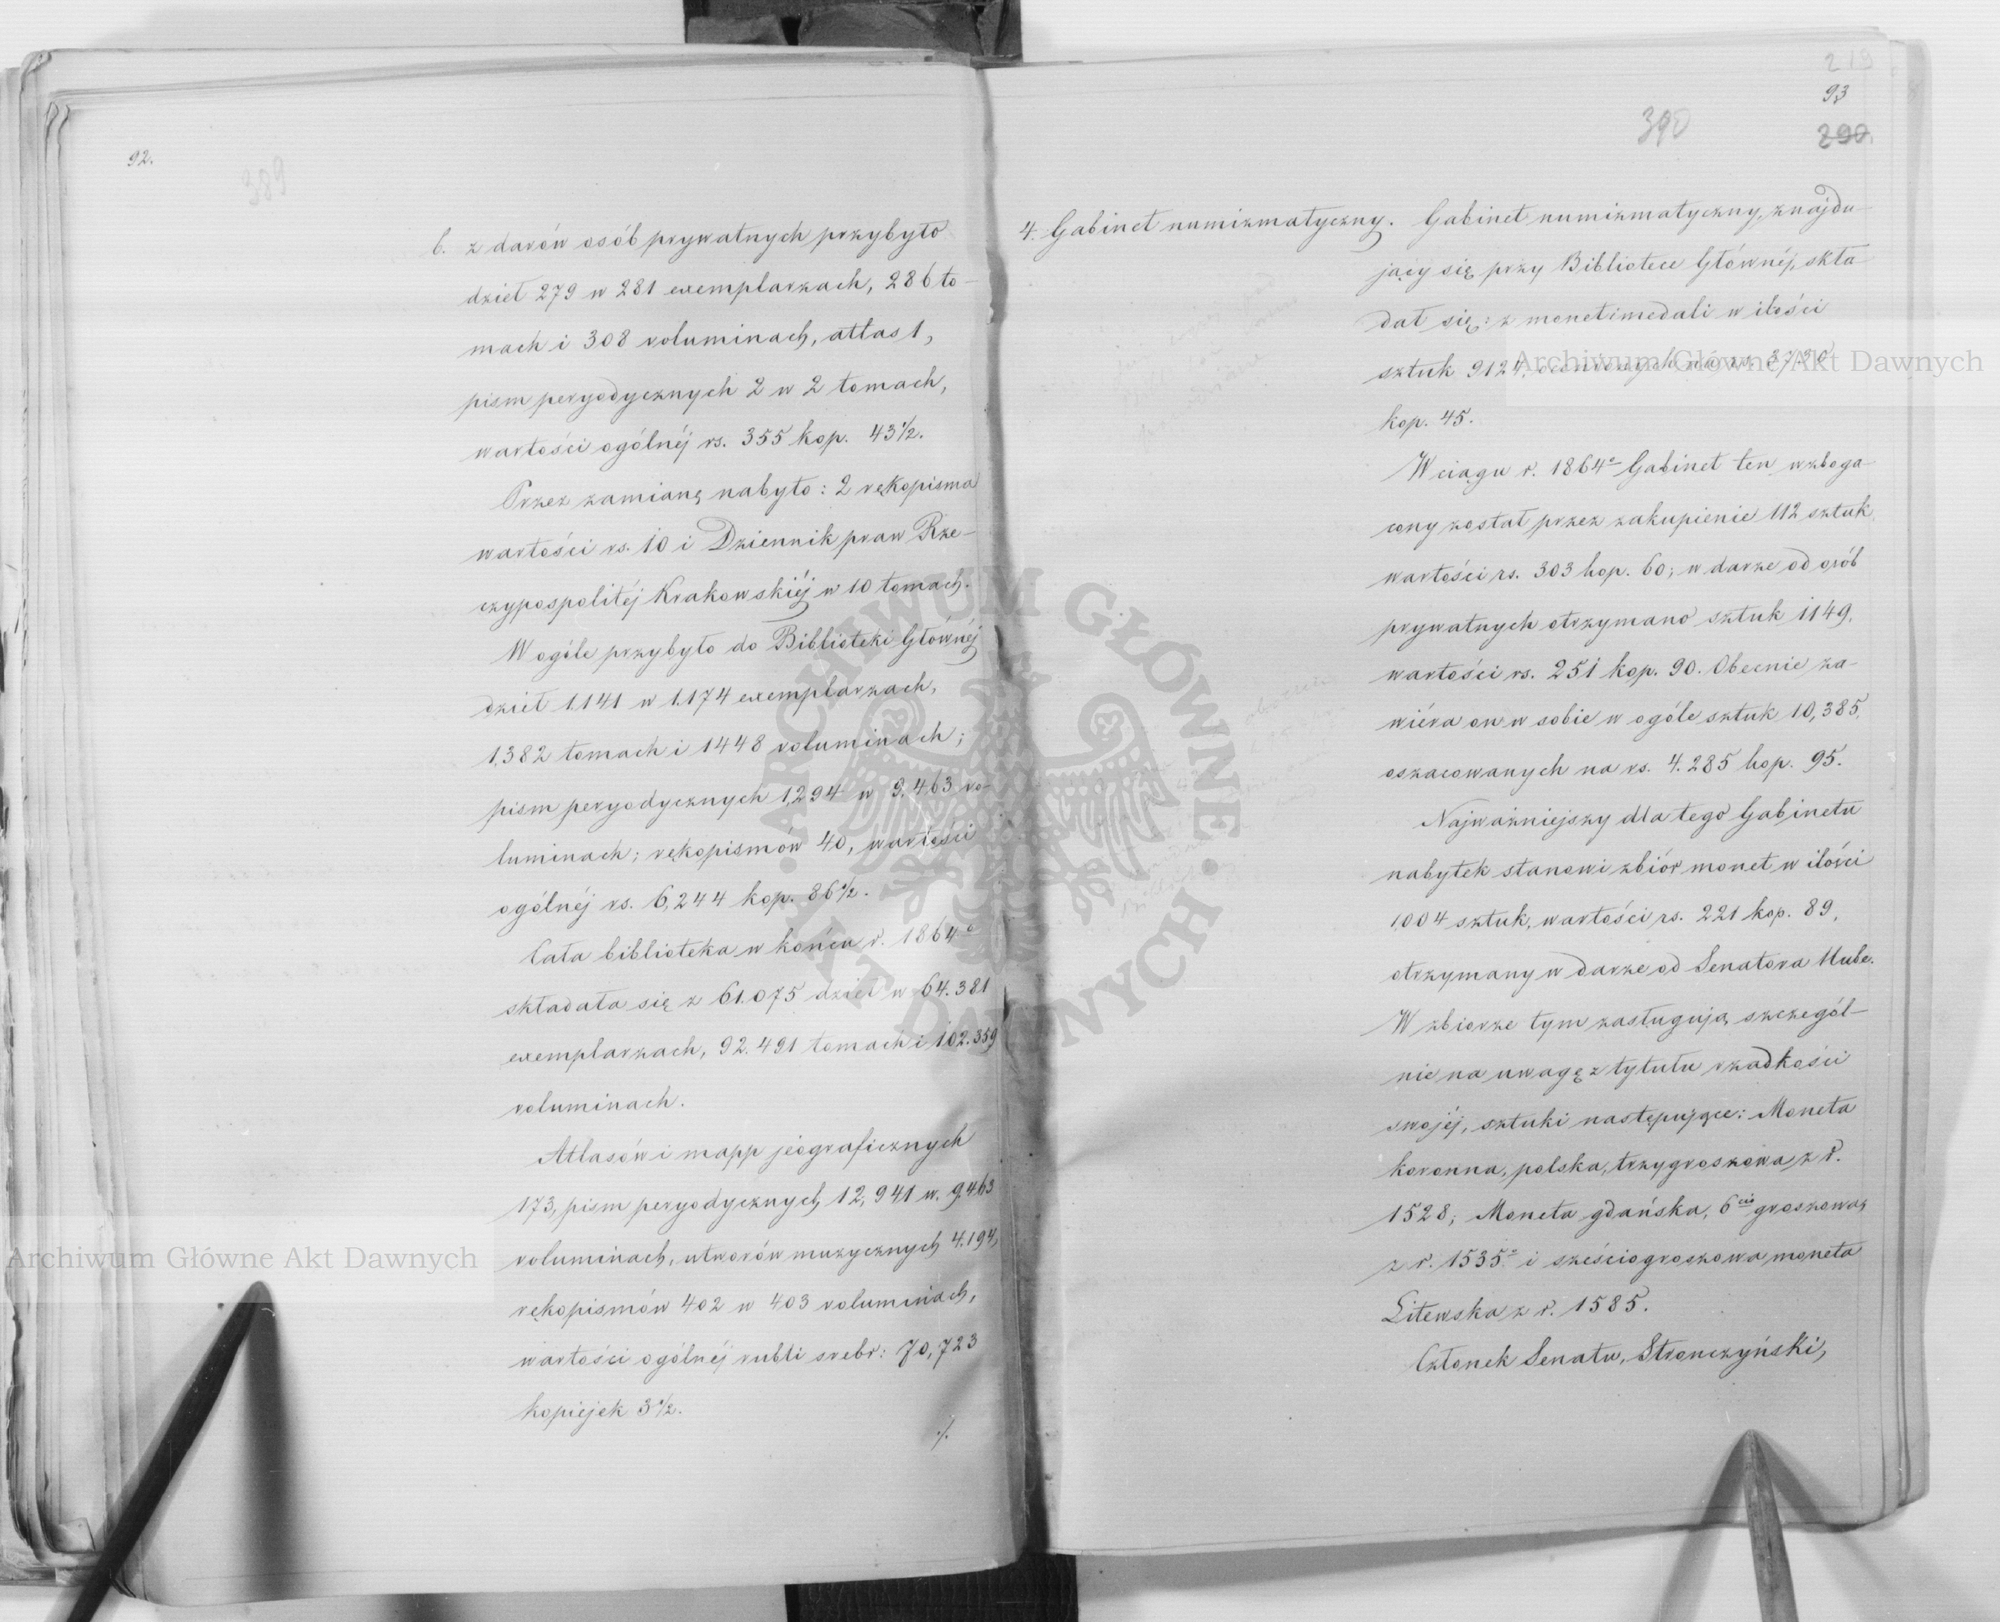 92.
389
b. z darów osób prywatnych przybyło
dzieł 279 w 281 exemplarzach, 286 to-
mach i 308 voluminach, atlas 1,
pism peryodycznych 2 w 2 tomach,
wartości ogólnéj rs. 355 kop. 43½.
Przez zamianę nabyto: 2 rękopisma
wartości rs. 10 i Dziennik praw Rze-
czypospolitéj Krakowskiéj w 10 tomach.
W ogóle przybyło do Biblioteki Głównéj
dzieł 1.141 w 1.174 exemplarzach,
1.382 tomach i 1448 voluminach;
pism peryodycznych 1,294 w 9.463 vo-
luminach; rękopismów 40, wartości
ogólnéj rs. 6,244 kop. 86½.
Cała biblioteka w końcu r. 1864o
składała się z 61.075 dzieł w 64.381
exemplarzach, 92.491 tomach i 102.359
voluminach.
Atlasów i mapp jeograficznych
173, pism peryodycznych 12,941 w. 9.463
voluminach, utworów muzycznych 4.194,
rękopismów 402 w 403 voluminach,
wartości ogólnéj rubli srebr: 70,723
kopiejek 3½.
./.
219
93
390
290.
4. Gabinet numizmatyczny. Gabinet numizmatyczny, znajdu-
jący się przy Bibliotece Głównéj, skła-
dał się: z monet i medali w ilości
sztuk 9124, ocenionych na rs. 3730
kop. 45.
W ciągu r. 1864o Gabinet ten wzboga-
cony został przez zakupienie 112 sztuk
wartości rs. 303 kop. 60; w darze od osób
prywatnych otrzymano sztuk 1149,
wartości rs. 251 kop. 90. Obecnie za-
wiéra on w sobie w ogóle sztuk 10,385,
oszacowanych na rs. 4.285 kop. 95.
Najważniejszy dla tego Gabinetu
nabytek stanowi zbiór monet w ilości
1004 sztuk, wartości rs. 221 kop. 89,
otrzymany w darze od Senatora Hube.
W zbiorze tym zasługują szczegól-
nie na uwagę z tytułu rzadkości
swojéj, sztuki następujące: Moneta
koronna, polska, trzygroszowa, z r.
1528; Moneta gdańska, 6cio groszowa,
z r. 1535o i sześciogroszowa moneta
Litewska z r. 1585.
Członek Senatu, Stronczyński,
Archiwum Główne Akt Dawnych
Archiwum Główne Akt Dawnych
ARCHIWUM GŁÓWNE AKT DAWNYCH